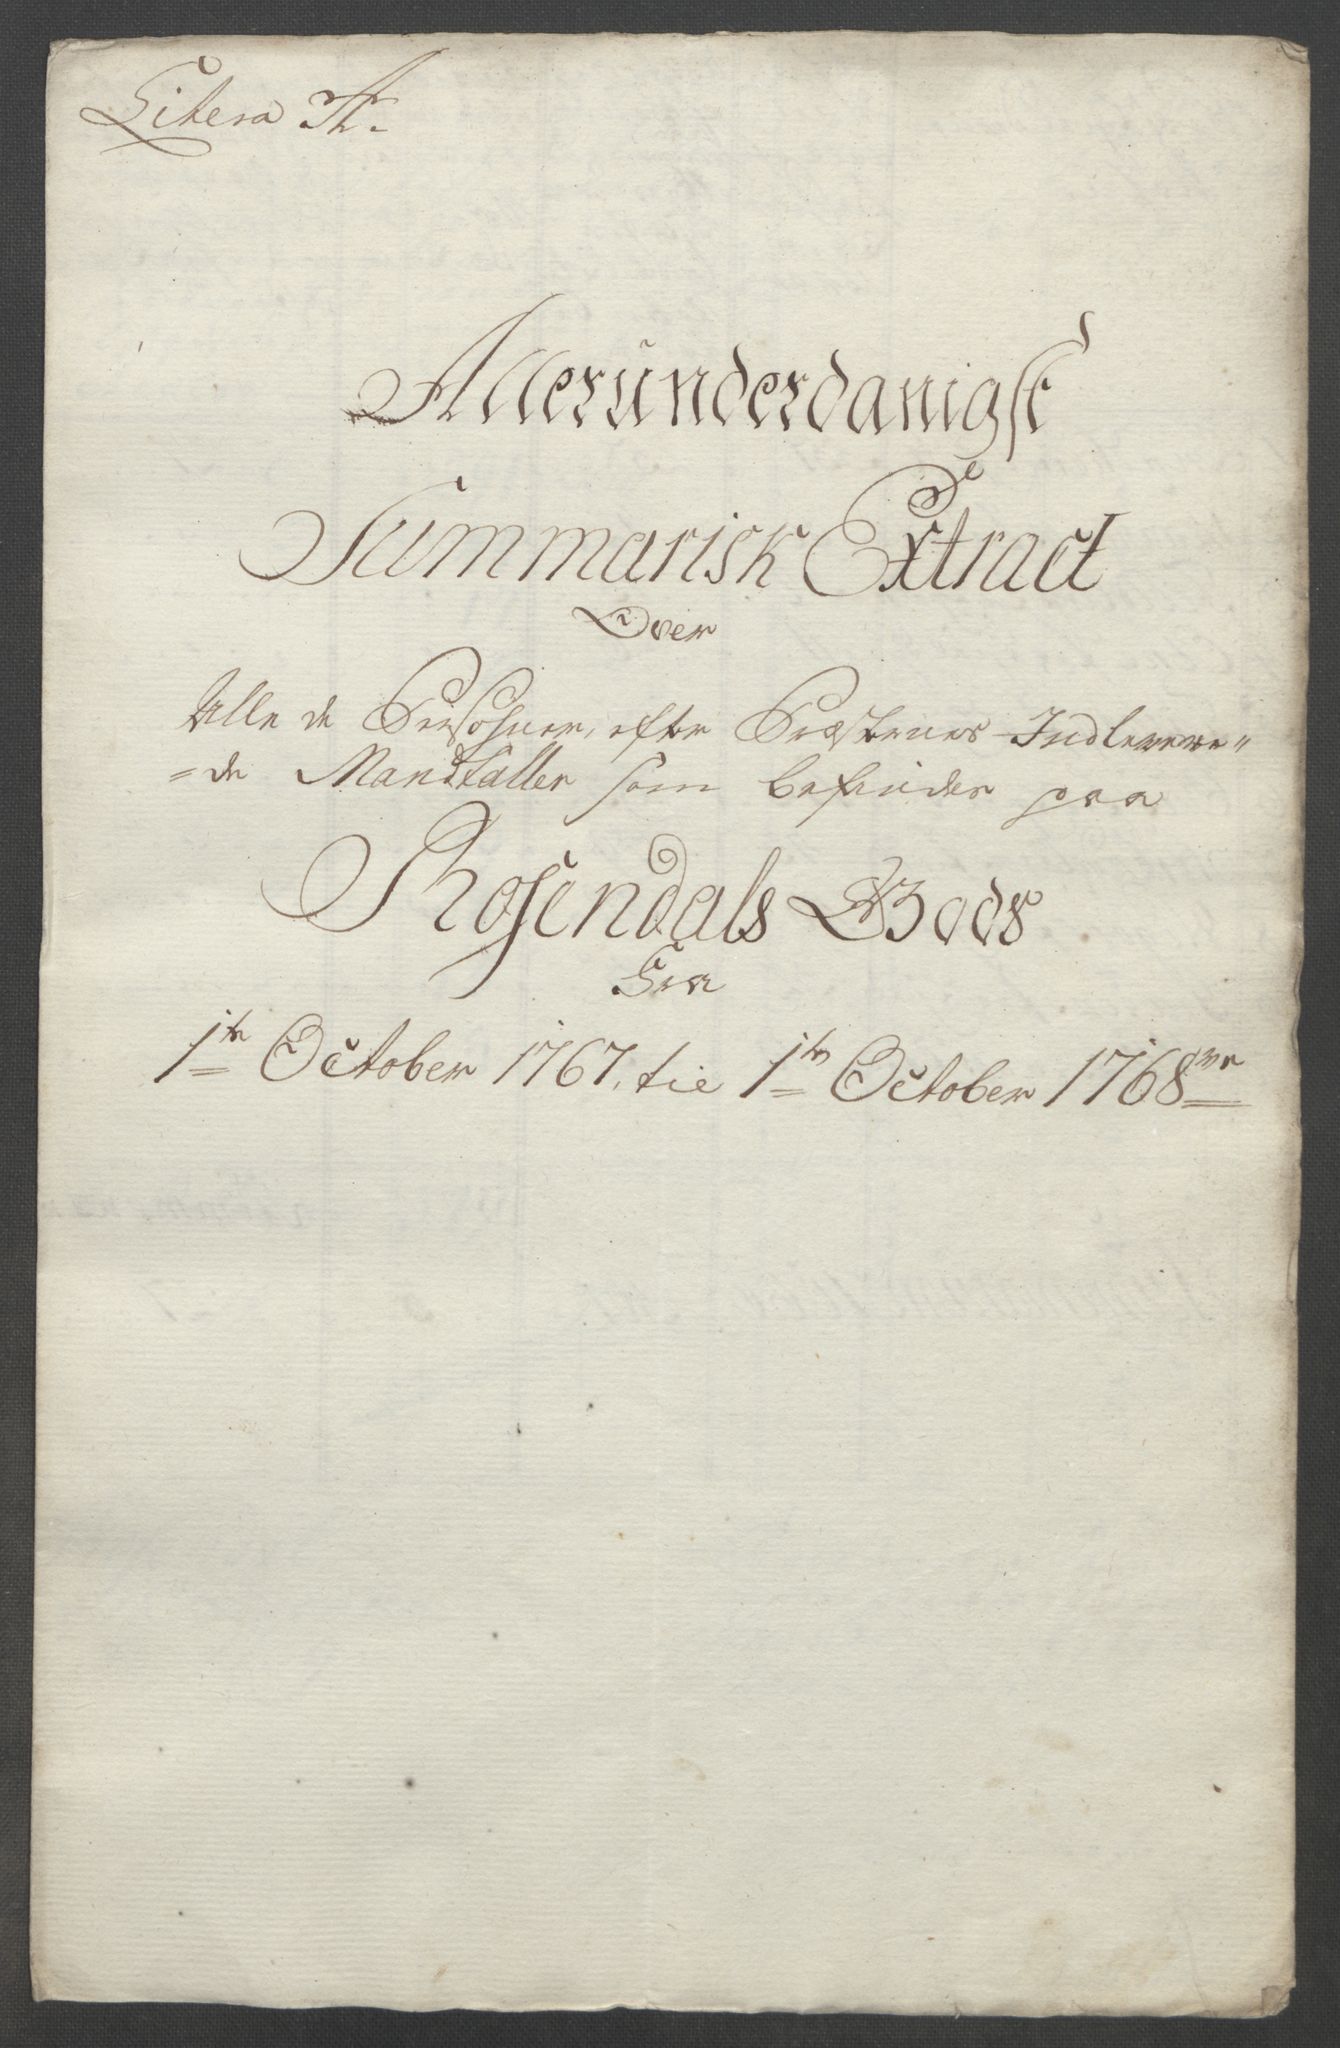 Litera A.
Alleründerdanigst
Summarisk Extract
Over
Alle de Persohner, efter Præsternes Indlevere„
„de Mandtaller som befindes paa
Rosendals Gods
Fra
1te October 1767, til 1te October 1768